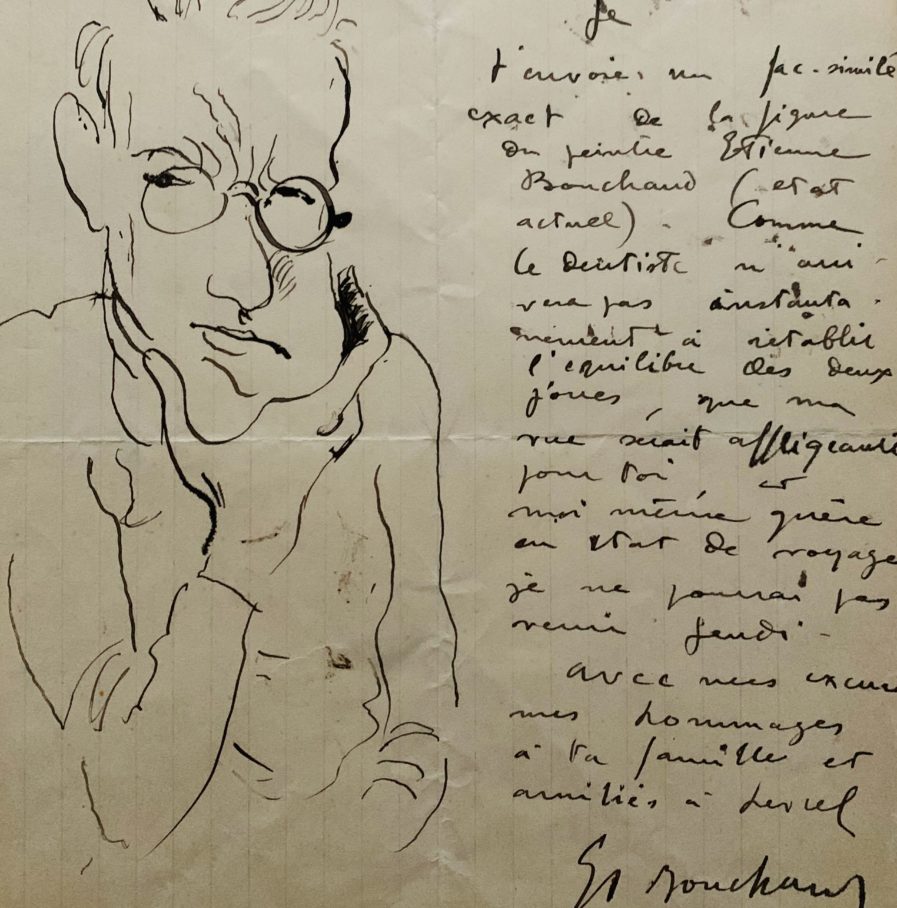 Je
t'envoie un fac-similé
exact de la figure
du peintre Etienne
Bouchaud (etat
actuel). Comme
le dentiste n'arri-
vera pas instanta-
nement à retablir
l'equilibre des deux
joues, que ma
vue serait affligeante
pour toi et
moi même guère
en etat de voyage
je ne pourrai pas
venir Jeudi.
avec mes excuses
mes hommages
à ta famille et
amitiés à
Et Bouchaud